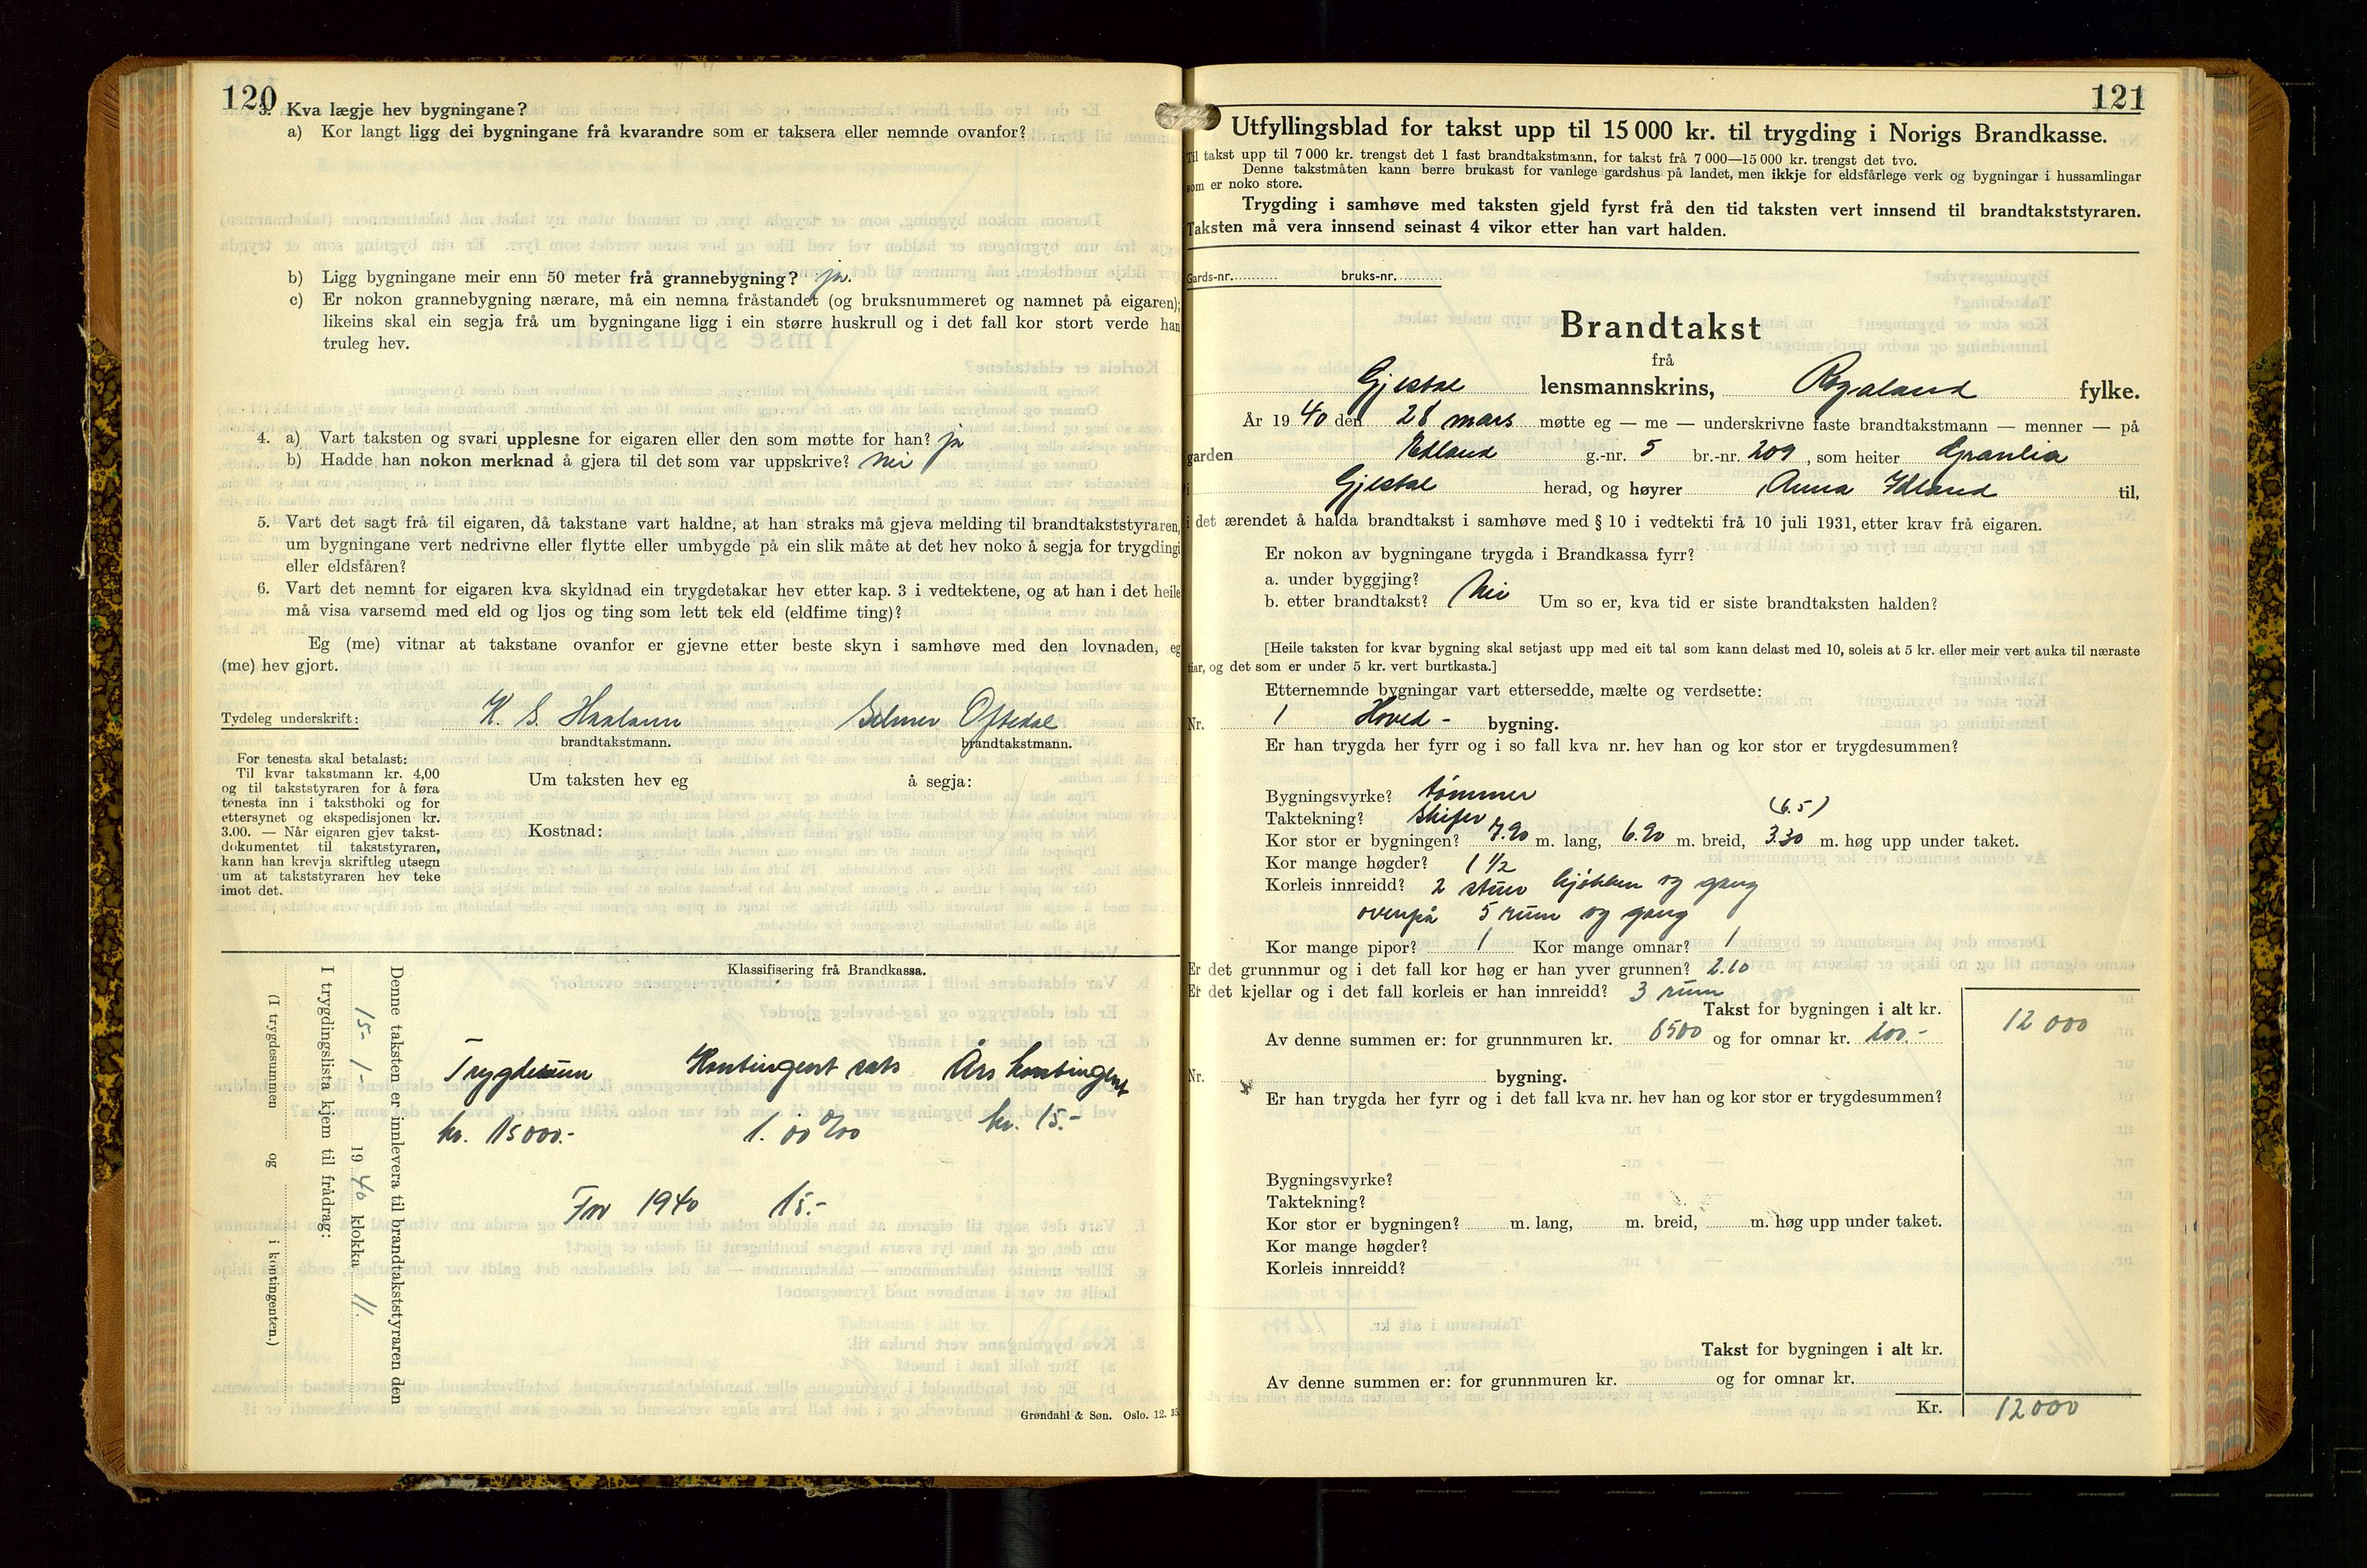 120
3. Kva lægje hev bygningane?
a) Kor langt ligg dei bygningane frå kvarandre som er taksera eller nemnde ovanfor?
b) Ligg bygningane meir enn 50 meter frå grannebygning? ja.
c) Er nokon grannebygning nærare, må ein nemna fråstandet (og bruksnummeret og namnet på eigaren);
likeins skal ein segja frå um bygningane ligg i ein større huskrull og i det fall kor stort verde han
truleg hev.
4. a) Vart taksten og svari upplesne for eigaren eller den som møtte for han? ja
b) Hadde han nokon merknad å gjera til det som var uppskrive? Nei
5. Vart det sagt frå til eigaren, då takstane vart haldne, at han straks må gjeva melding til brandtakststyraren,
um bygningane vert nedrivne eller flytte eller umbygde på ein slik måte at det hev noko å segja for trygdingi
eller eldsfåren?
6. Vart det nemnt for eigaren kva skyldnad ein trygdetakar hev etter kap. 3 i vedtektene, og at han i det heile
må visa varsemd med eld og ljos og ting som lett tek eld (eldfime ting)?
Eg (me) vitnar at takstane ovanfor er gjevne etter beste skyn i samhøve med den lovnaden, eg
(me) hev gjort.
Tydeleg underskrift: K. S. Haaland Oftedal
brandtakstmann. brandtakstmann.
For tenesta skal betalast:
Til kvar takstmann kr. 4,00
og til takststyraren for å føra
tenesta inn i takstboki og for
ettersynet og ekspedisjonen kr.
3.00. — Når eigaren gjev takst-
dokumentet til takststyraren,
kann han krevja skriftleg utsegn
um at takststyraren hev teke
imot det.
Um taksten hev eg å segja:
Kostnad:
Klassifisering frå Brandkassa.
Denne taksten er innlevera til brandtakststyraren den
15- 1- 19 40 klokka 11.
I trygdingslista kjem til frådrag:
(I trygdesummen og i kontingenten.)
Trygdesum Kontingent sats Års kontingent
kr. 15000.- 1.00 ‰ kr. 15.-
For 1940 15.-
Grøndahl & Søn. Oslo. 12. 35.
121
Utfyllingsblad for takst upp til 15 000 kr. til trygding i Norigs Brandkasse.
Til takst upp til 7 000 kr. trengst det 1 fast brandtakstmann, for takst frå 7 000—15 000 kr. trengst det tvo.
Denne takstmåten kann berre brukast for vanlege gardshus på landet, men ikkje for eldsfårlege verk og bygningar i hussamlingar
som er noko store.
Trygding i samhøve med taksten gjeld fyrst frå den tid taksten vert innsend til brandtakststyraren.
Taksten må vera innsend seinast 4 vikor etter han vart halden.
Gards-nr. bruks-nr.
Brandtakst
frå
Gjestal lensmannskrins, Rogaland fylke.
År 1940 den 28 mars møtte eg — me — underskrivne faste brandtakstmann — menner — på
garden Edland g.-nr. 5 br.-nr. 209, som heiter Granlia
i Gjestal herad, og høyrer Anna Edland til,
i det ærendet å halda brandtakst i samhøve med § 10 i vedtekti frå 10 juli 1931, etter krav frå eigaren.
Er nokon av bygningane trygda i Brandkassa fyrr?
a. under byggjing?
b. etter brandtakst? Nei Um so er, kva tid er siste brandtaksten halden?
[Heile taksten for kvar bygning skal setjast upp med eit tal som kann delast med 10, soleis at 5 kr. eller meir vert auka til næraste
tiar, og det som er under 5 kr. vert burtkasta.]
Etternemnde bygningar vart ettersedde, mælte og verdsette:
Nr. 1 Hoved - bygning.
Er han trygda her fyrr og i so fall kva nr. hev han og kor stor er trygdesummen?
Bygningsvyrke? tømmer
Taktekning? skifer (6.5)
Kor stor er bygningen? 7.90 m. lang, 6.90 m. breid, 3.30 m. høg upp under taket.
Kor mange høgder? 1 1/2
Korleis innreidd? 2 stuer kjøkken og gang
ovenpå 5 rum og gang
Kor mange pipor? 1 Kor mange omnar? 1
Er det grunnmur og i det fall kor høg er han yver grunnen? 2.10
Er det kjellar og i det fall korleis er han innreidd? 3 rum
Takst for bygningen i alt kr. 12 000
Av denne summen er: for grunnmuren kr. og for omnar kr. 200.-
Nr. bygning.
Er han trygda her fyrr og i det fall kva nr. hev han og kor stor er trygdesummen?
Bygningsvyrke?
Taktekning?
Kor stor er bygningen? m. lang, m. breid, m. høg upp under taket.
Kor mange høgder?
Korleis innreidd?
Takst for bygningen i alt kr.
Av denne summen er: for grunnmuren kr. og for omnar kr.
Kr. 12000